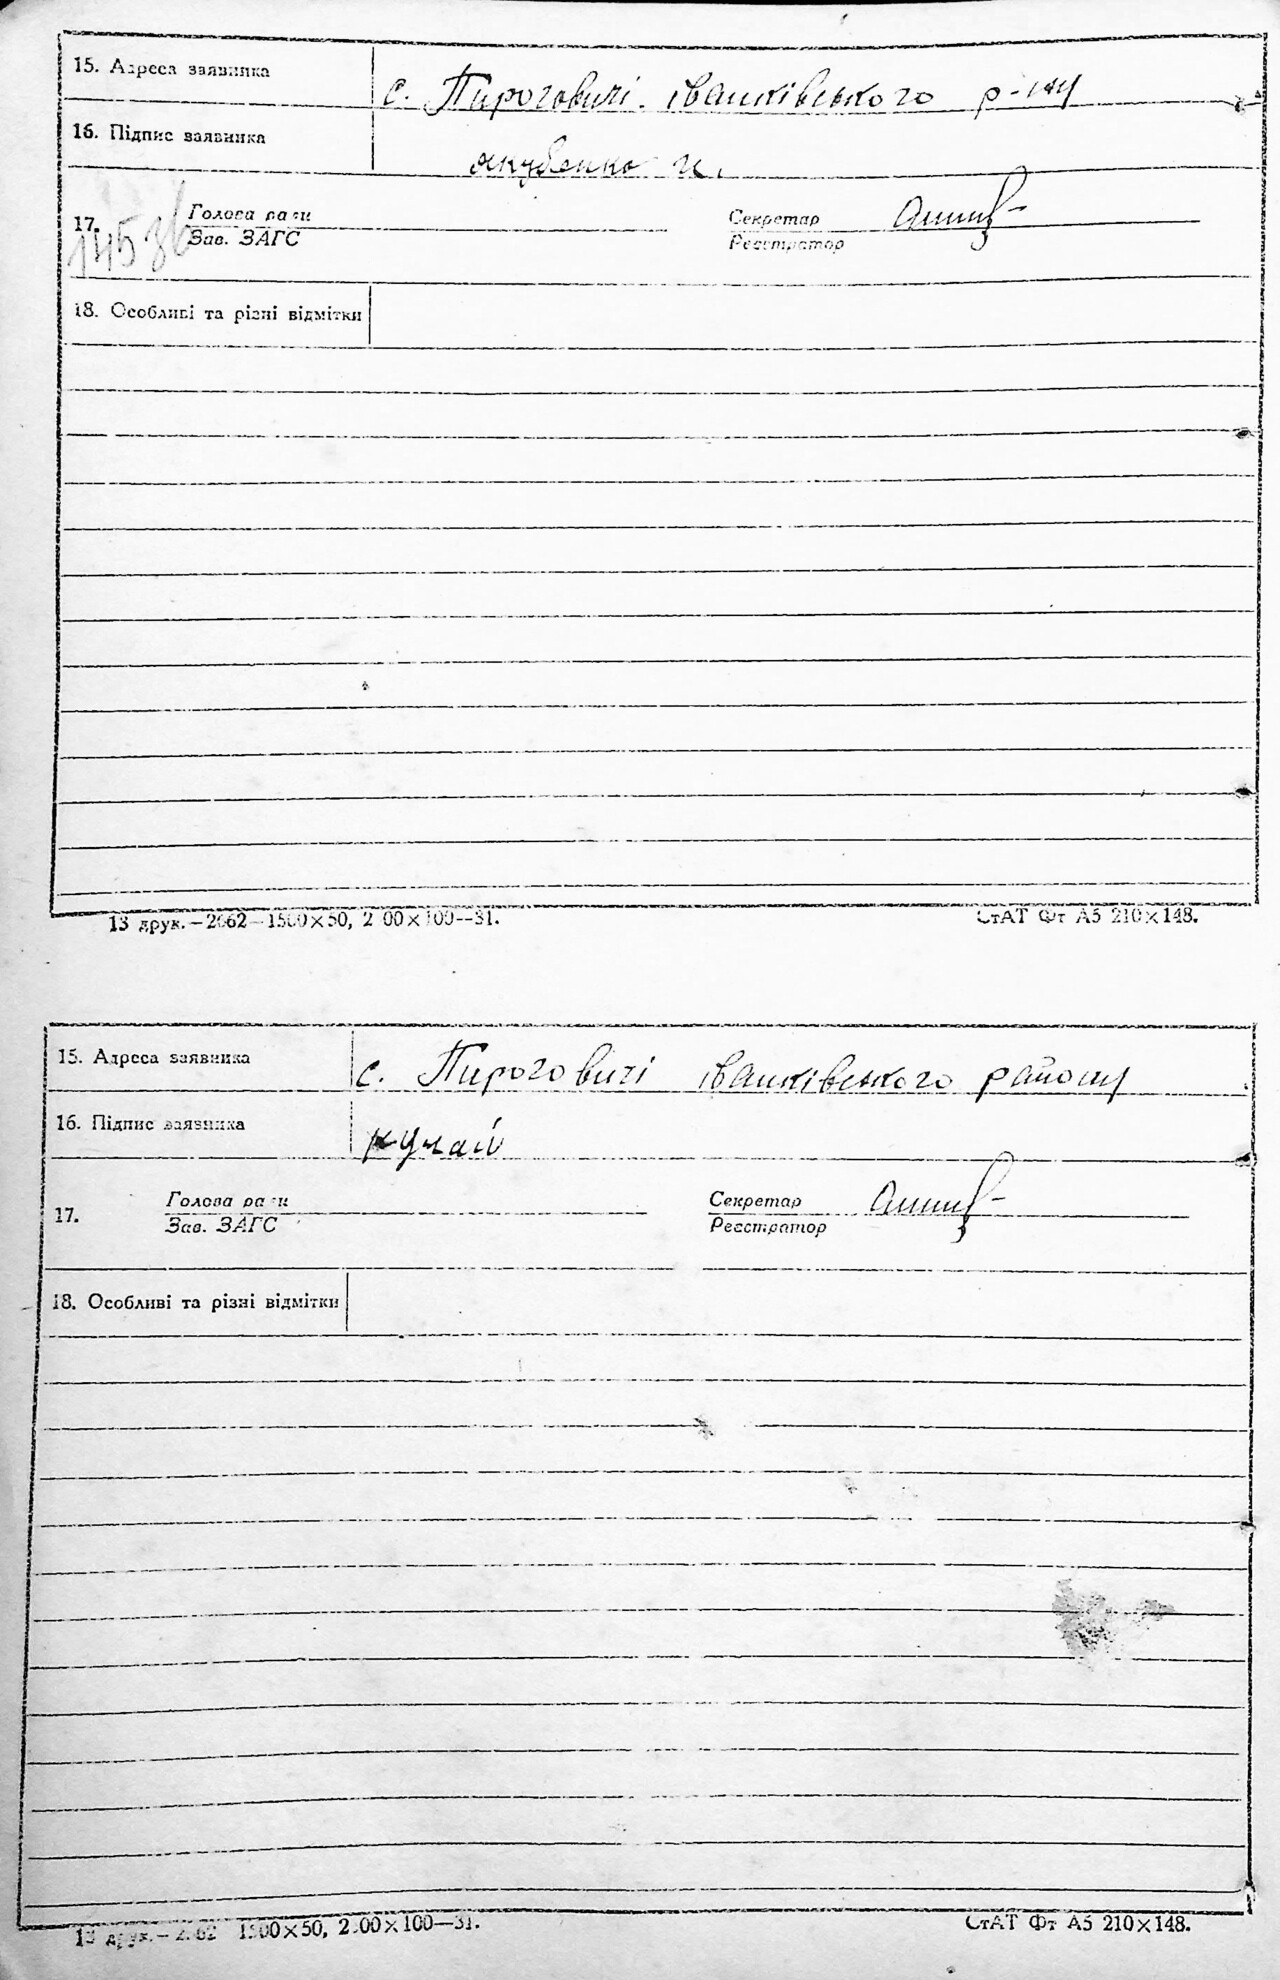 15. Адреса заявника с. Пироговичі. іванківського р-ну
16. Підпис заявника якубенко и.
17. Голова ради Секретар
Зав. ЗАГС Реєстратор
18. Особливі та різні відмітки
13 друк.—2662—1500×50, 2 00×100—31. СтАТ Фт А5 210×148.
15. Адреса заявника с. Пироговичі іванківського району
16. Підпис заявника кучай
17. Голова ради Секретар
Зав. ЗАГС Реєстратор
18. Особливі та різні відмітки
13 друк.— 1500×50, 2 00×100—31. СтАТ Фт А5 210×148.